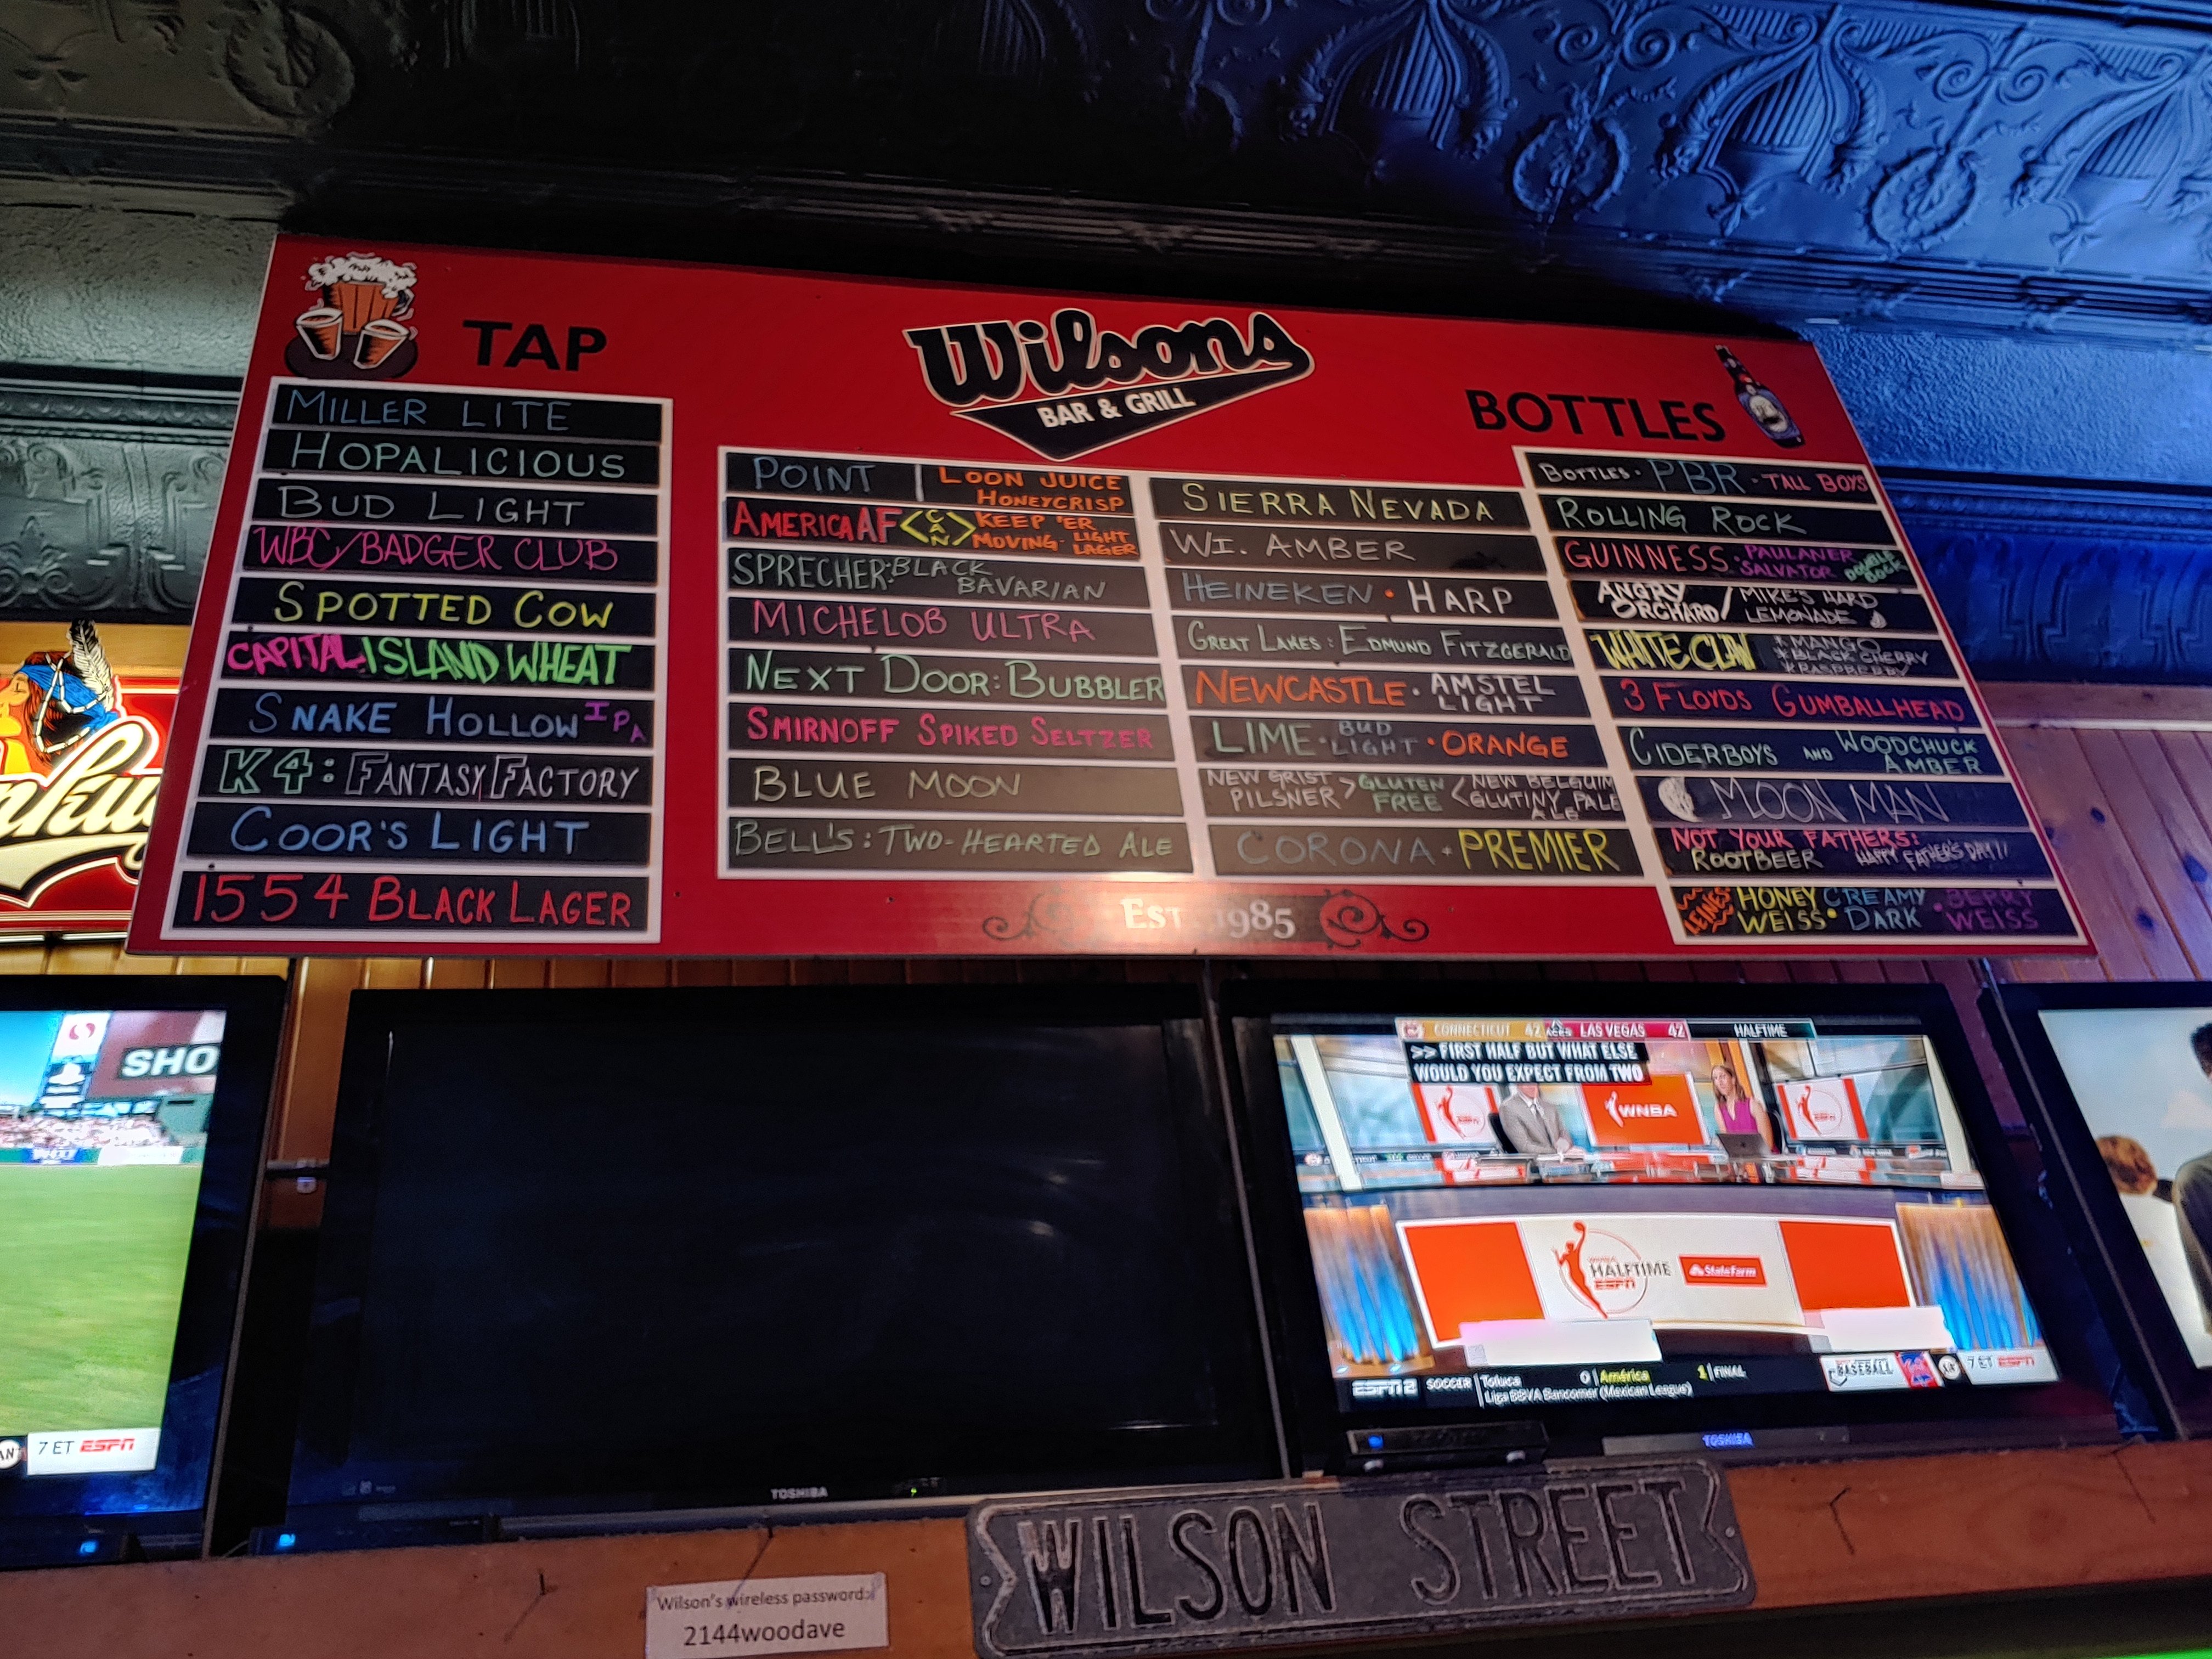 TAP
Wilsons
BAR & GRILL
BOTTLES
MILLER LITE
HOPALICIOUS
BUD LIGHT
WBC/BADGER CLUB
SPOTTED COW
CAPITAL ISLAND WHEAT
SNAKE HOLLOW IPA
K4: FANTASY FACTORY
COOR'S LIGHT
1554 BLACK LAGER
POINT | LOON JUICE
HONEYCRISP
AMERICA AF <CAN> KEEP 'ER
MOVING - LIGHT
LAGER
SPRECHER: BLACK
BAVARIAN
MICHELOB ULTRA
NEXT DOOR: BUBBLER
SMIRNOFF SPIKED SELTZER
BLUE MOON
BELL'S: TWO-HEARTED ALE
SIERRA NEVADA
WI. AMBER
HEINEKEN • HARP
GREAT LAKES: EDMUND FITZGERALD
NEWCASTLE • AMSTEL
LIGHT
LIME • BUD
LIGHT • ORANGE
NEW GRIST
PILSNER > GLUTEN
FREE < NEW BELGUIM
GLUTINY PALE
ALE
CORONA • PREMIER
BOTTLES • PBR • TALL BOYS
ROLLING ROCK
GUINNESS • PAULANER
SALVATOR DOUBLE
BOCK
ANGRY
ORCHARD / MIKE'S HARD
LEMONADE
WHITE CLAW * MANGO
* BLACK CHERRY
* RASPBERRY
3 FLOYDS GUMBALLHEAD
CIDERBOYS AND WOODCHUCK
AMBER
MOON MAN
NOT YOUR FATHERS:
ROOTBEER HAPPY FATHER'S DAY!!
LEINES HONEY
WEISS • CREAMY
DARK • BERRY
WEISS
EST. 1985
SHO
YAHOO!
7 ET ESPN
TOSHIBA
CONNECTICUT 42 ACES LAS VEGAS 42 HALFTIME
>> FIRST HALF BUT WHAT ELSE
WOULD YOU EXPECT FROM TWO
WNBA
HALFTIME
ESPN
StateFarm
ESPN2 SOCCER Toluca 0 América 1 FINAL
Liga BBVA Bancomer (Mexican League)
BASEBALL 7 ET ESPN
TOSHIBA
WILSON STREET
Wilson's wireless password:
2144woodave